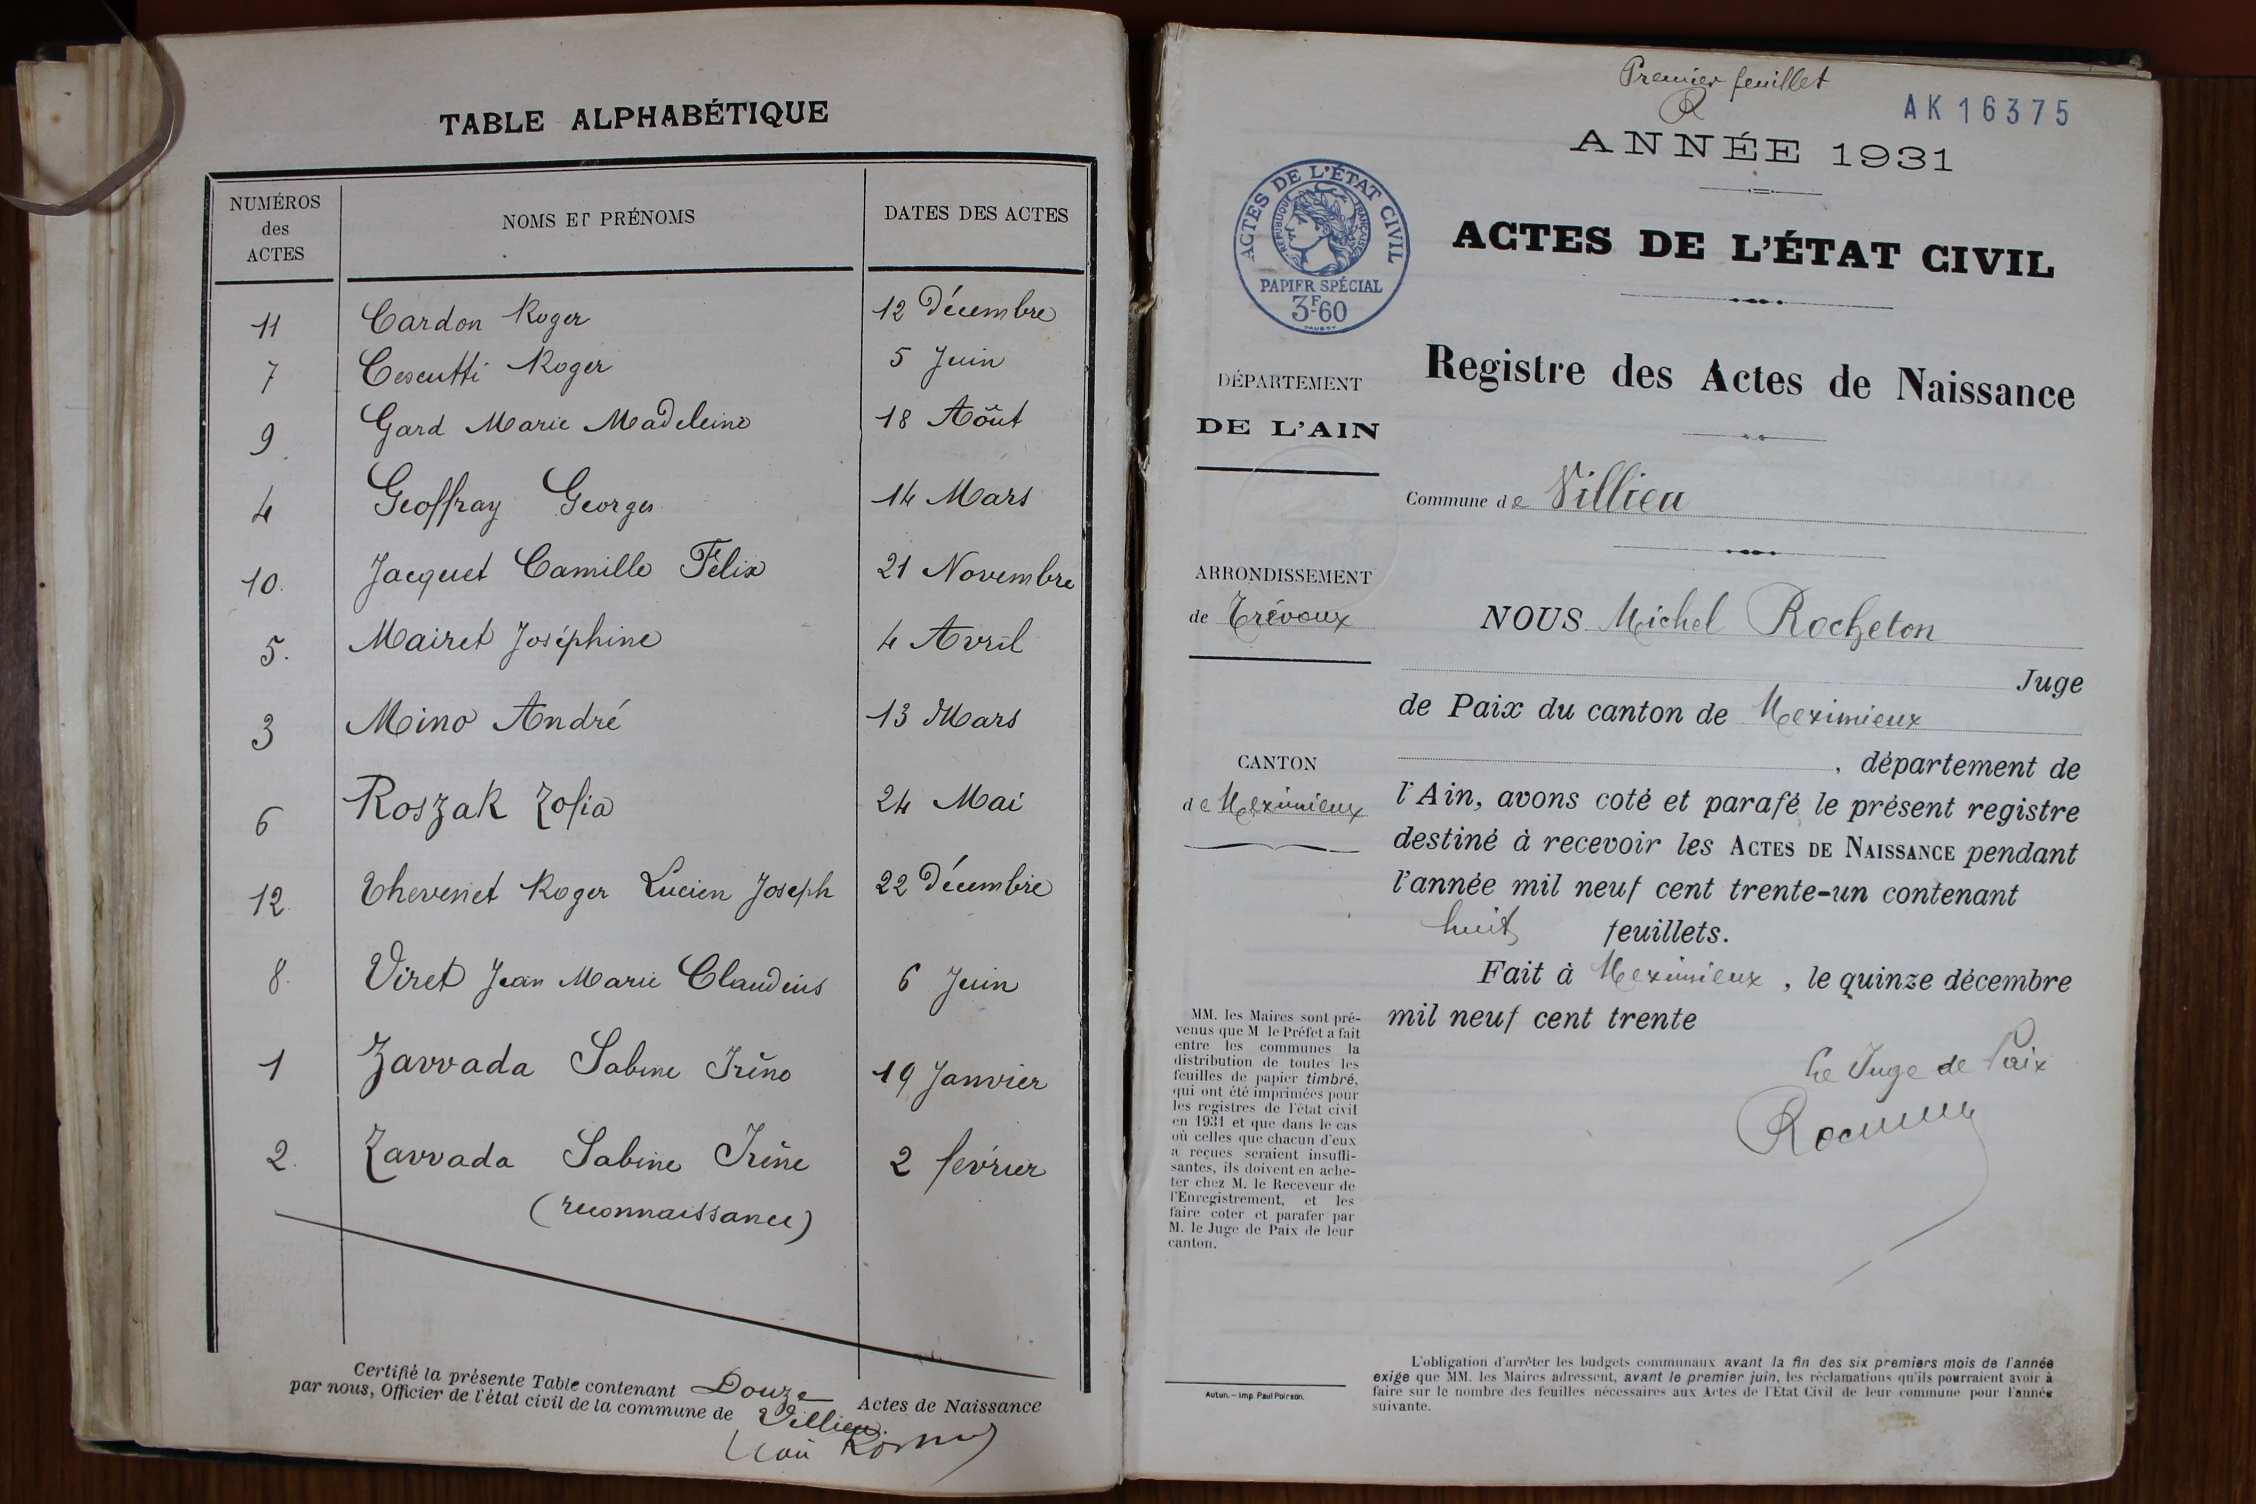 TABLE ALPHABÉTIQUE
NUMÉROS
des
ACTES
NOMS ET PRÉNOMS
DATES DES ACTES
11 Cardon Roger 12 Décembre
7 Cescutti Roger 5 Juin
9. Gard Marie Madeleine 18 Août
4 Geoffray Georges 14 Mars
10. Jacquet Camille Félix 21 Novembre
5. Mairet Joséphine 4 Avril
3 Mino André 13 Mars
6 Roszak Zofia 24 Mai
12. Thevenet Roger Lucien Joseph 22 Décembre
8. Viret Jean Marie Claudius 6 Juin
1 Zavvada Sabine Irène 19 Janvier
2. Zavvada Sabine Irène 2 février
(reconnaissance)
Certifié la présente Table contenant Douze Actes de Naissance
par nous, Officier de l'état civil de la commune de Villieu.
Premier feuillet
AK16375
ANNÉE 1931
ACTES DE L'ÉTAT CIVIL
RÉPUBLIQUE FRANÇAISE
PAPIER SPÉCIAL
3F60
ACTES DE L'ÉTAT CIVIL
Registre des Actes de Naissance
DÉPARTEMENT
DE L'AIN
Commune de Villieu
ARRONDISSEMENT
de Trévoux
CANTON
de Meximieux
NOUS Michel Rocheton
Juge
de Paix du canton de Meximieux
, département de
l'Ain, avons coté et parafé le présent registre
destiné à recevoir les ACTES DE NAISSANCE pendant
l'année mil neuf cent trente-un contenant
huit feuillets.
Fait à Meximieux, le quinze décembre
mil neuf cent trente
Le Juge de Paix
MM. les Maires sont pré-
venus que M le Préfet a fait
entre les communes la
distribution de toutes les
feuilles de papier timbré,
qui ont été imprimées pour
les registres de l'état civil
en 1931 et que dans le cas
où celles que chacun d'eux
a reçues seraient insuffi-
santes, ils doivent en ache-
ter chez M. le Receveur de
l'Enregistrement, et les
faire coter et parafer par
M. le Juge de Paix de leur
canton.
Autun. – Imp. Paul Poirson.
L'obligation d'arrêter les budgets communaux avant la fin des six premiers mois de l'année
exige que MM. les Maires adressent, avant le premier juin, les réclamations qu'ils pourraient avoir à
faire sur le nombre des feuilles nécessaires aux Actes de l'Etat Civil de leur commune pour l'année
suivante.